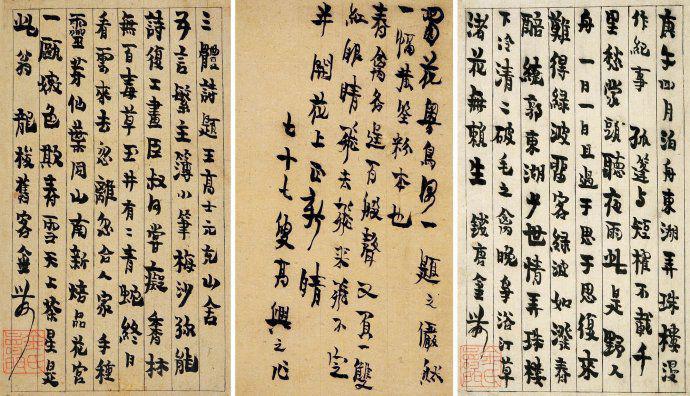 庚午四月泊舟東湖弄珠樓漫
作紀事 孤篷与短櫂不載千
里愁蒙頭聽夜雨此是野人
舟 一日一日且過于思于思復來
難得綠波留客綠波如潑春
醅 繞郭東湖少世情弄珠樓
下冷清二破毛之禽晚爭浴汀草
渚花無賴生 錢唐金農
蜀花粤鳥一題之儼然
一幅黃筌粉本也
春禽名是百般聲又買雙
紅眼睛飛去飛来飛不定
半開花上正新晴
七十七叟高興之作
三體詩題王高士元充山舍
五言繁主簿小筆梅沙弥能
詩復工畫臣叔何嘗癡 香林
無百毒草玉井有二青蛇終日
看雲來去忽離忽合人家 手種
靈芽仙葉同山南新焙品花宮
一甌嫩色欺春雪天上茶星是
此翁 龍梭舊客金農